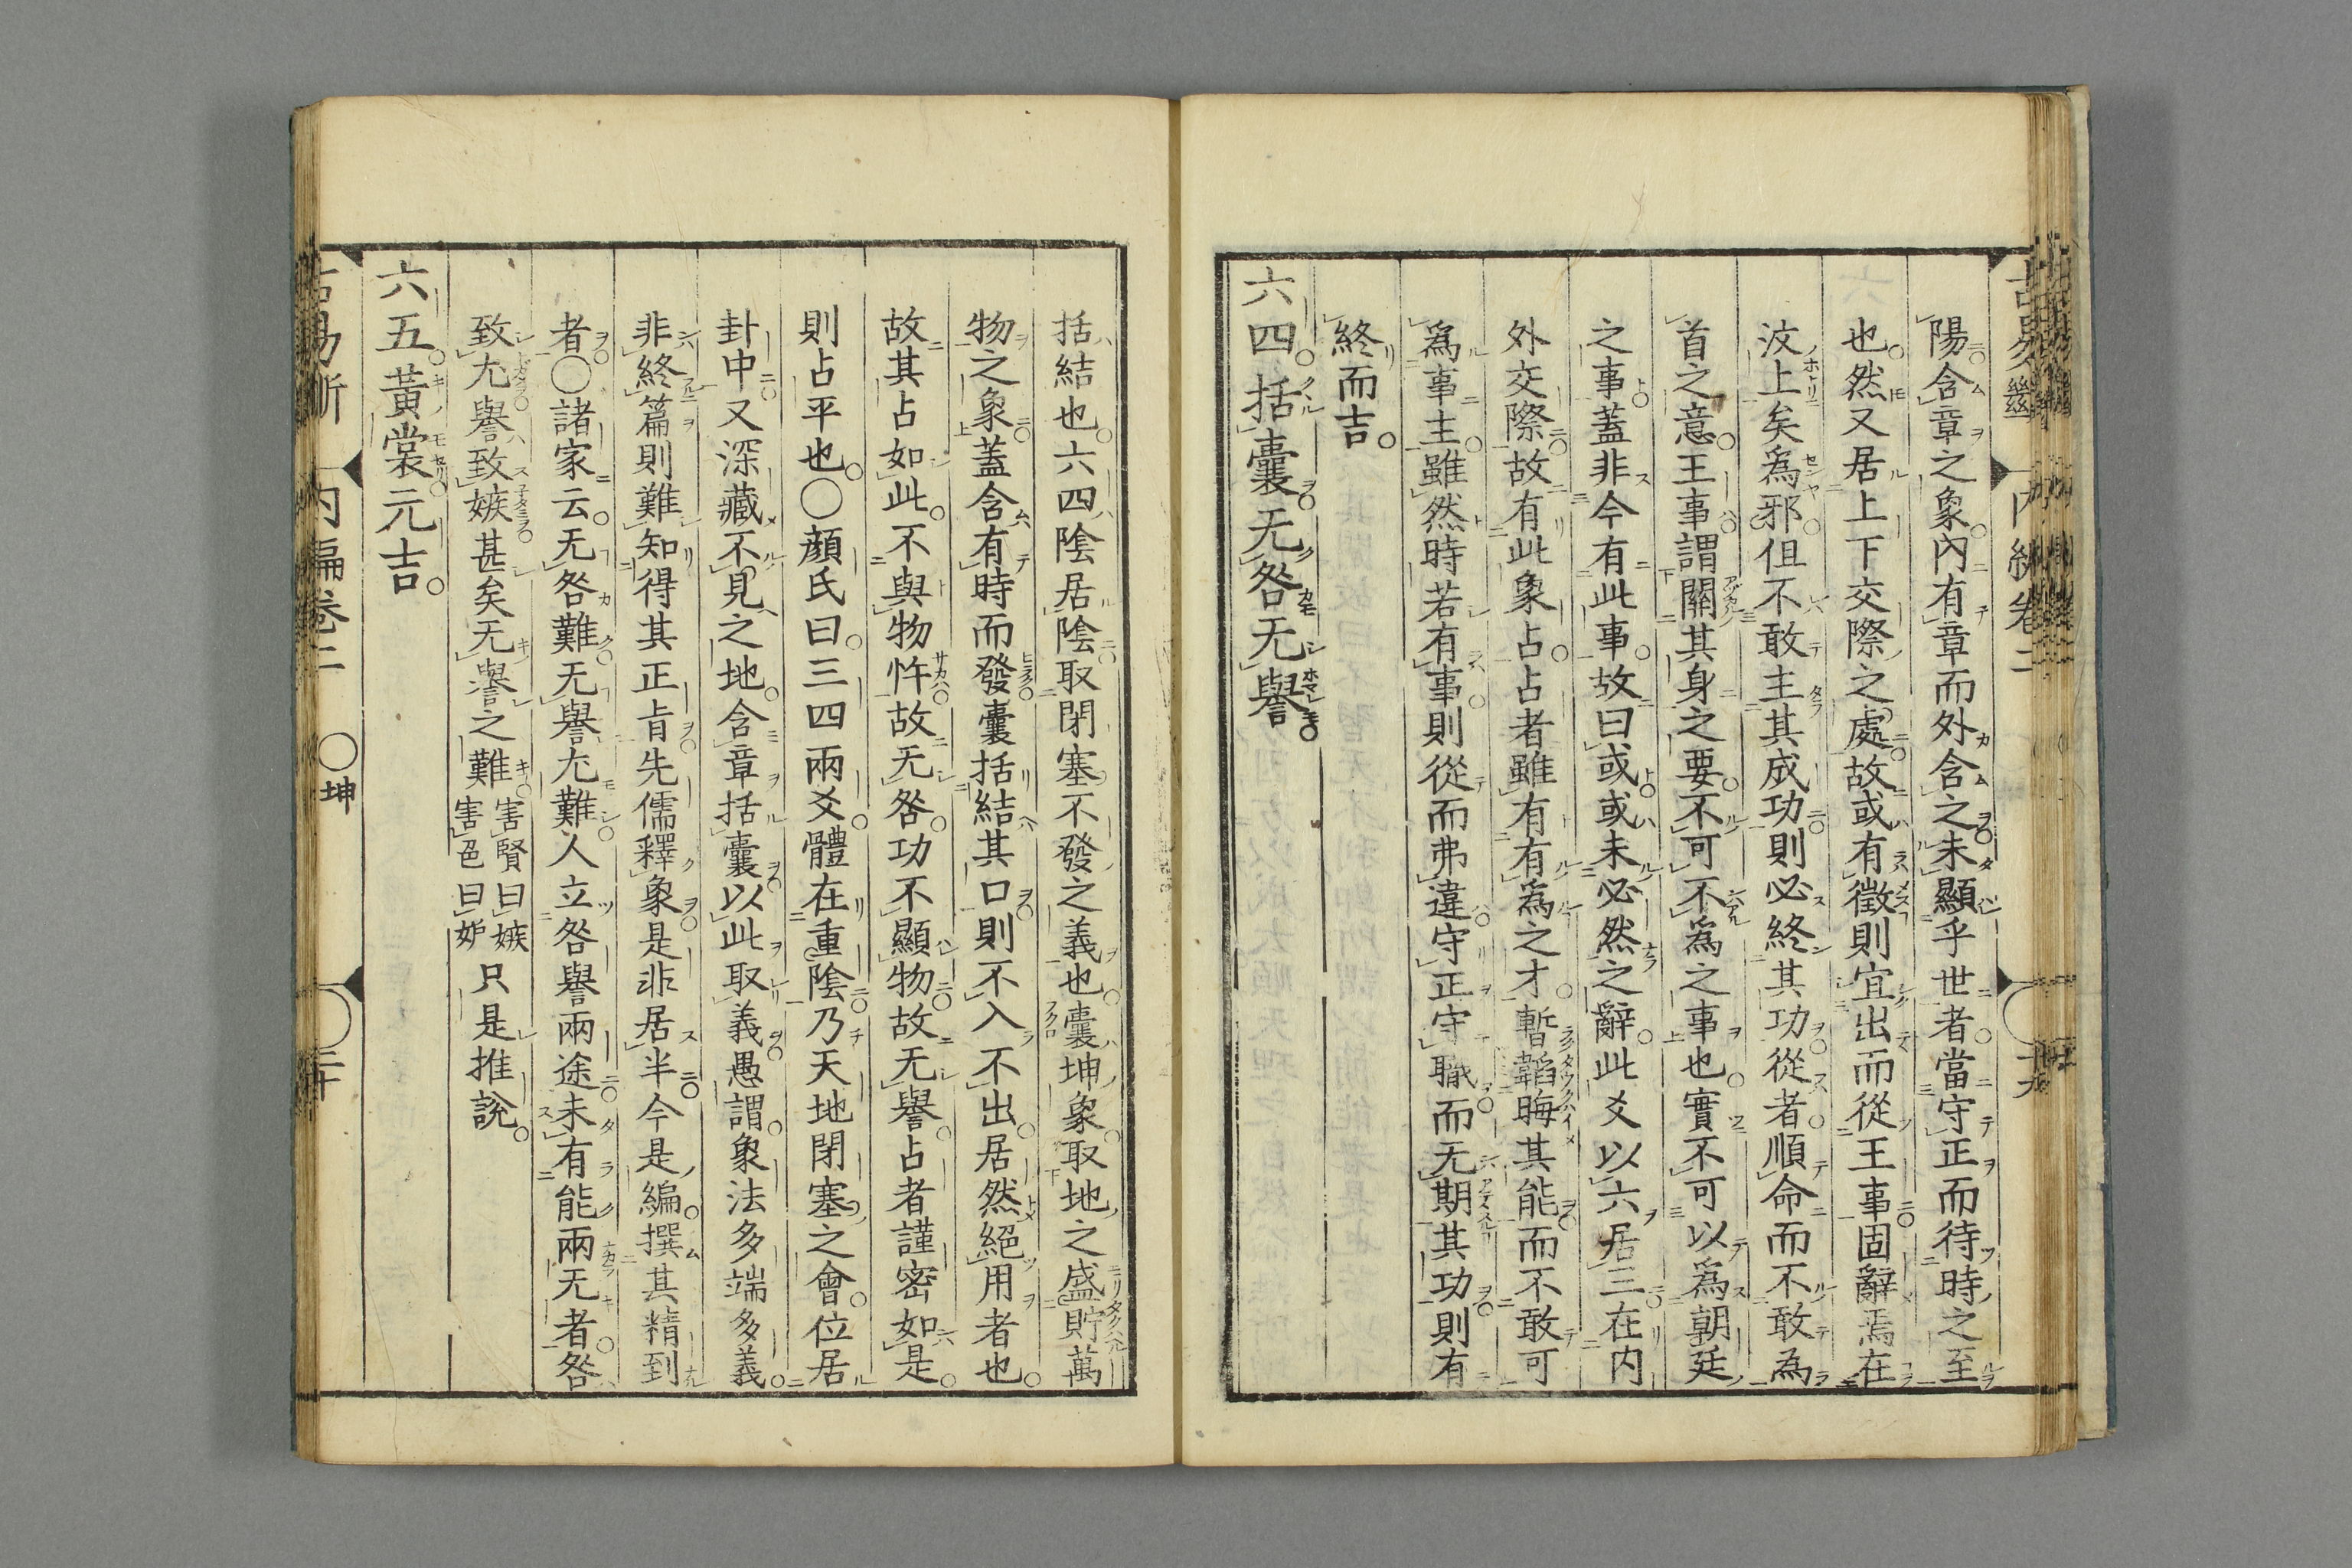 陽含章之象內有章而外含之未顯乎世者當守正而待時之至
也然又居上下交際之處故或有徵則宜出而從王事固辭焉在
汶上矣爲邪但不敢主其成功則必終其功從者順命而不敢為
首之意王事謂關其身之要不可不爲之事也實不可以爲朝廷
之事蓋非今有此事故曰或或未必然之辭此爻以六居三在内
外交際故有此象占占者雖有有爲之才暫韜晦其能而不敢可
爲事主雖然時若有事則從而弗違守正守職而无期其功則有
終而吉
六四括囊无咎无譽
括結也六四陰居陰取閉塞不發之義也囊坤象取地之盛貯萬
物之象蓋含有時而發囊括結其口則不入不出居然絕用者也
故其占如此不與物忤故无咎功不顯物故无譽占者謹密如是
則占平也○顔氏曰三四兩爻體在重陰乃天地閉塞之會位居
卦中又深藏不見之地含章括囊以此取義愚謂象法多端多義
非終篇則難知得其正旨先儒釋象是非居半今是編撰其精到
者○諸家云无咎難无譽尤難人立咎譽兩途未有能兩无者咎
致尤譽致嫉甚矣无譽之難害賢曰嫉害色曰妒只是推說
六五黃裳元吉
内編卷二 ○坤 二十